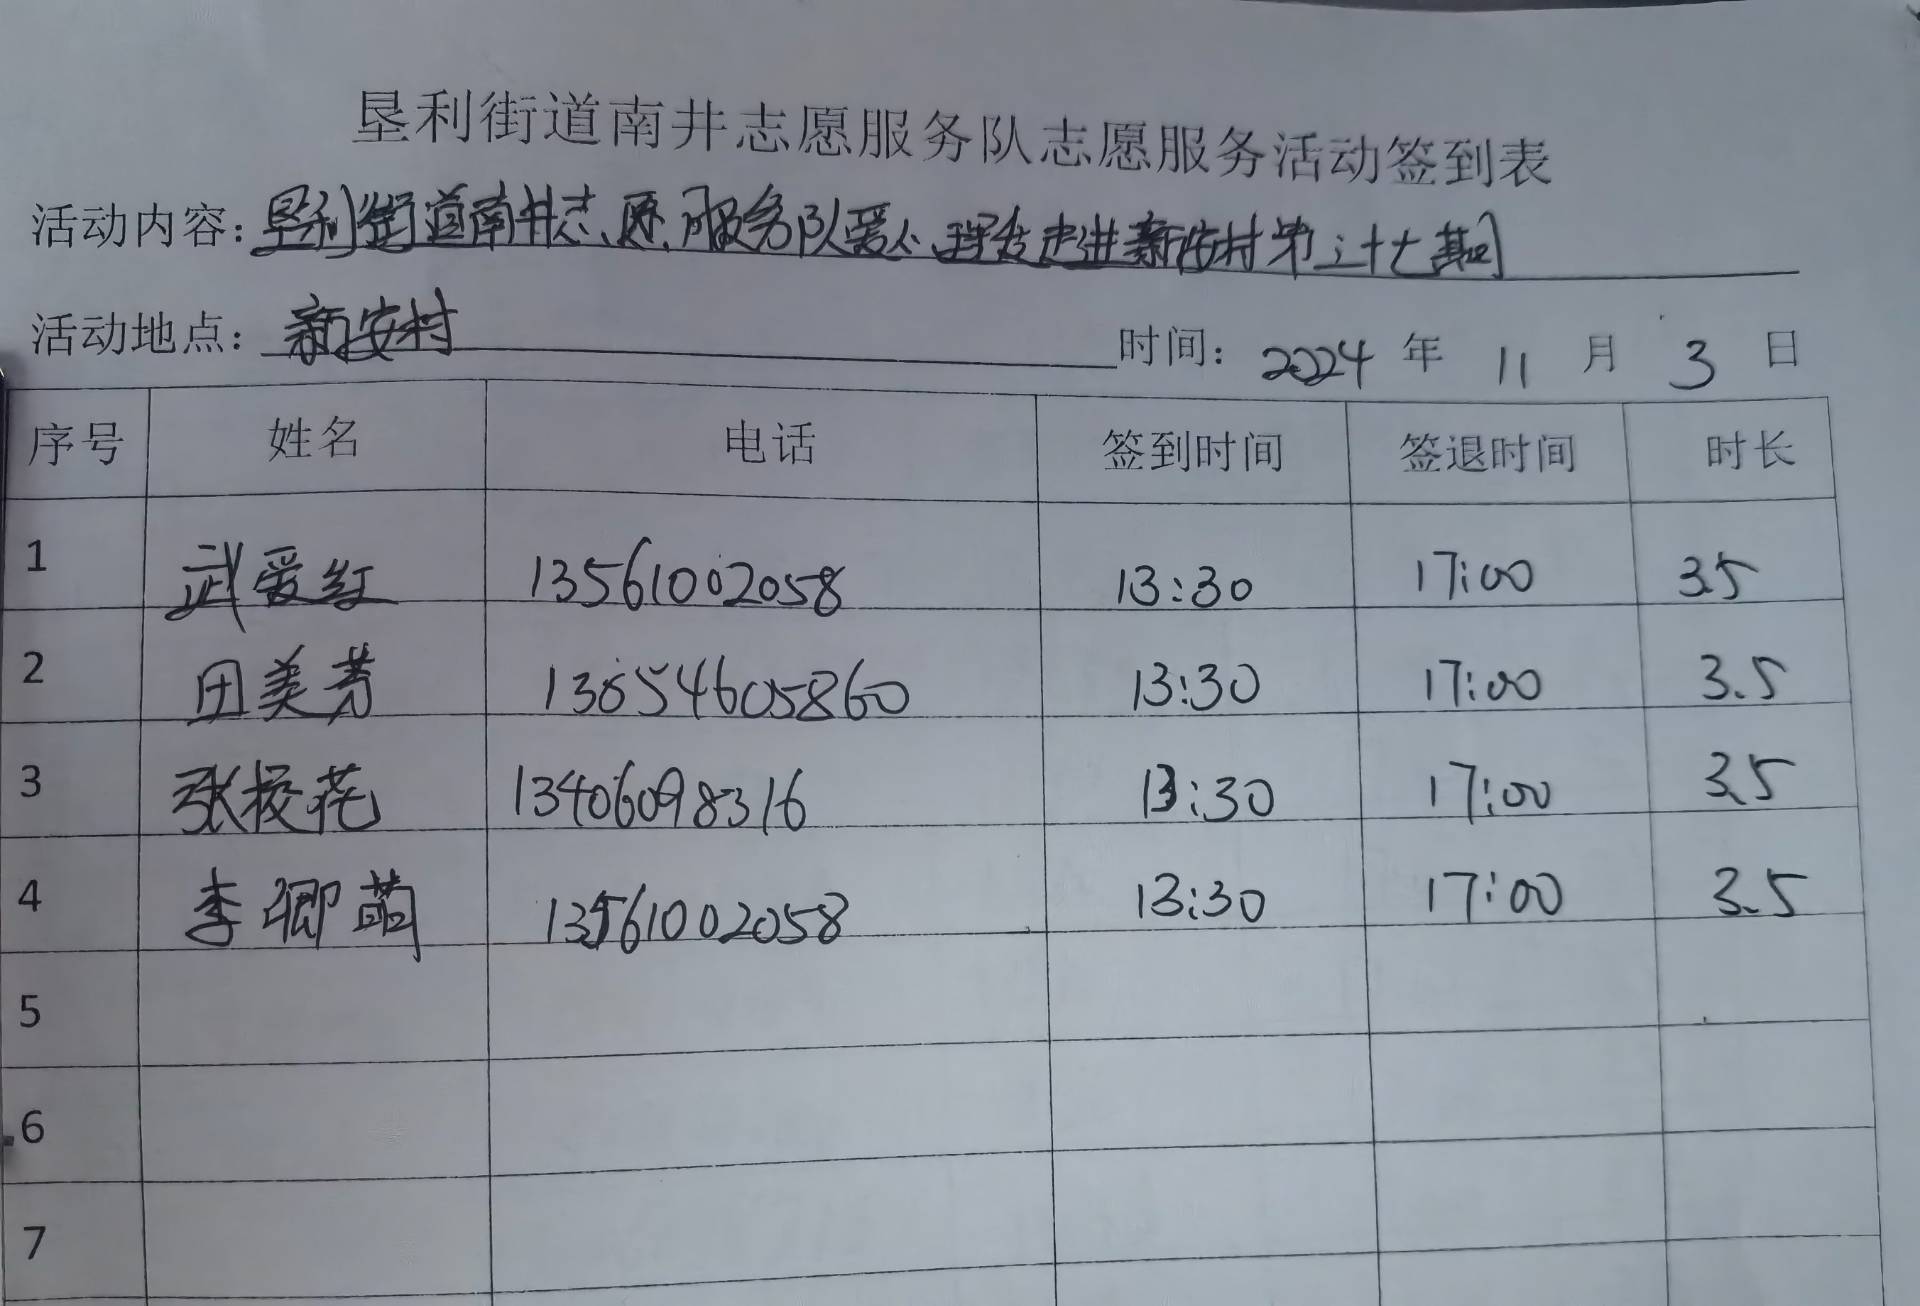 垦利街道南井志愿服务队志愿服务活动签到表
活动内容：垦利街道南井志愿服务队爱心理发走进新安村第三十七期
活动地点：新安村 时间：2024 年 11 月 3 日
序号 姓名 电话 签到时间 签退时间 时长
1 武爱红 13561002058 13:30 17:00 3.5
2 田美芳 13854605860 13:30 17:00 3.5
3 张校花 13406098316 13:30 17:00 3.5
4 李卿萌 13561002058 13:30 17:00 3.5
5
6
7